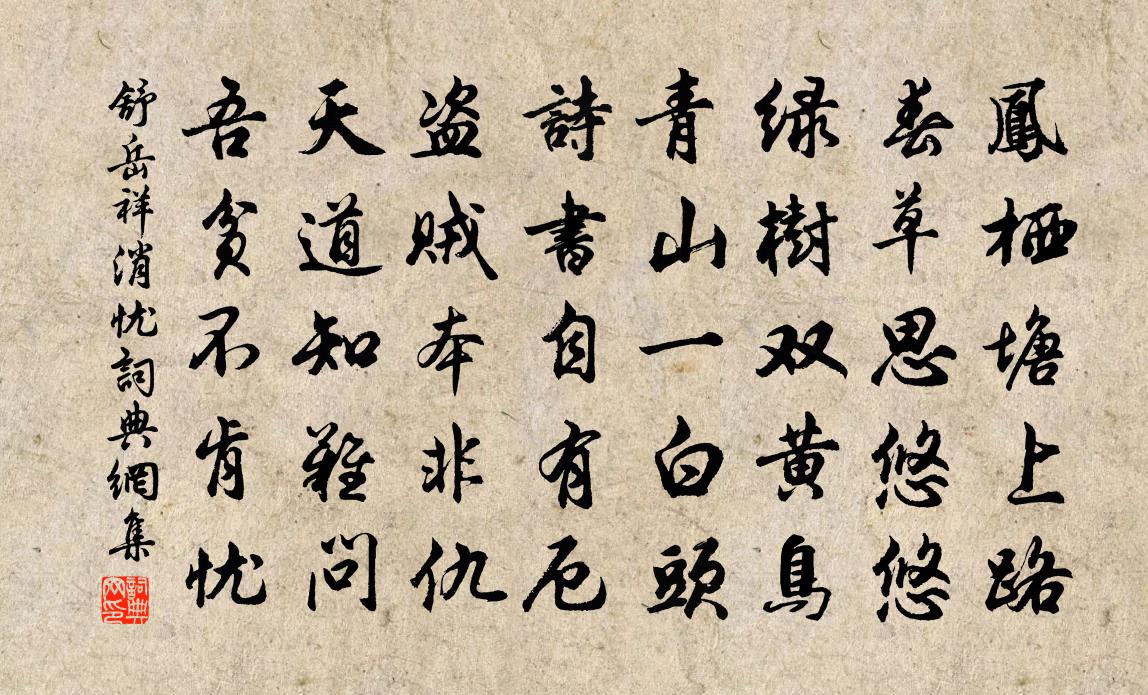 鳳栖塘上路
春草思悠悠
緑樹双黄鳥
青山一白頭
詩書自有厄
盗賊本非仇
天道知難問
吾貧不肯忧
舒岳祥消忧詞典網集
詞典
网印